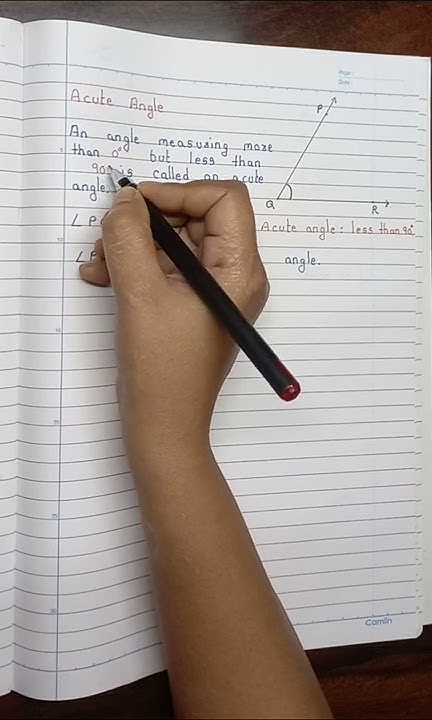 Page :
Date :
Acute Angle
An angle measuring more
than 0° but less than
90° is called an acute
angle.
P
Q
R
Acute angle: less than 90°
∠P
∠P
angle.
5
10
15
20
25
30
Camlin